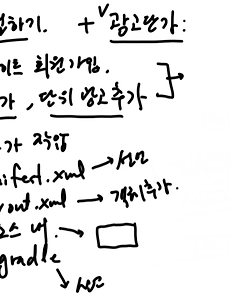 하기. + 광고단가:
이트 회원가입.
가, 단위 광고추가
가 작업
nifest.xml → 선언
yout.xml → 객체추가.
소스 내. →
gradle